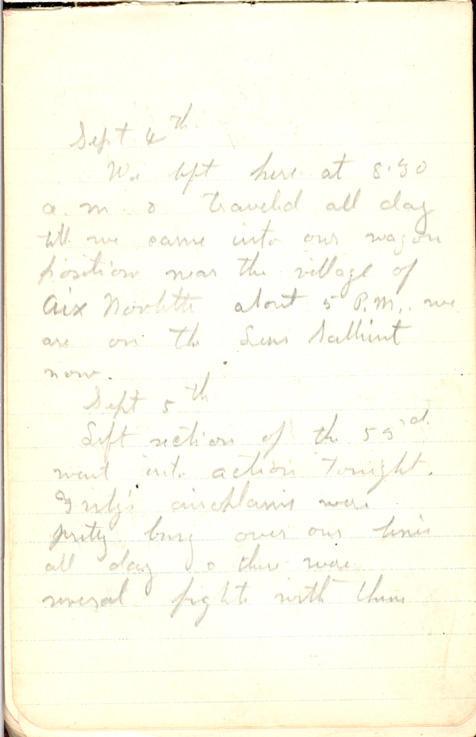 Sept 4th
We left here at 8.30
a.m. & traveled all day
till we came into our wagon
position near the village of
Aix Noulette about 5 P.M., we
are on the Lens Sallient
now.
Sept 5th
Left section of the 53rd
went into action Tonight.
airoplanes were
pretty busy over our lines
all day & there were
several fights with them